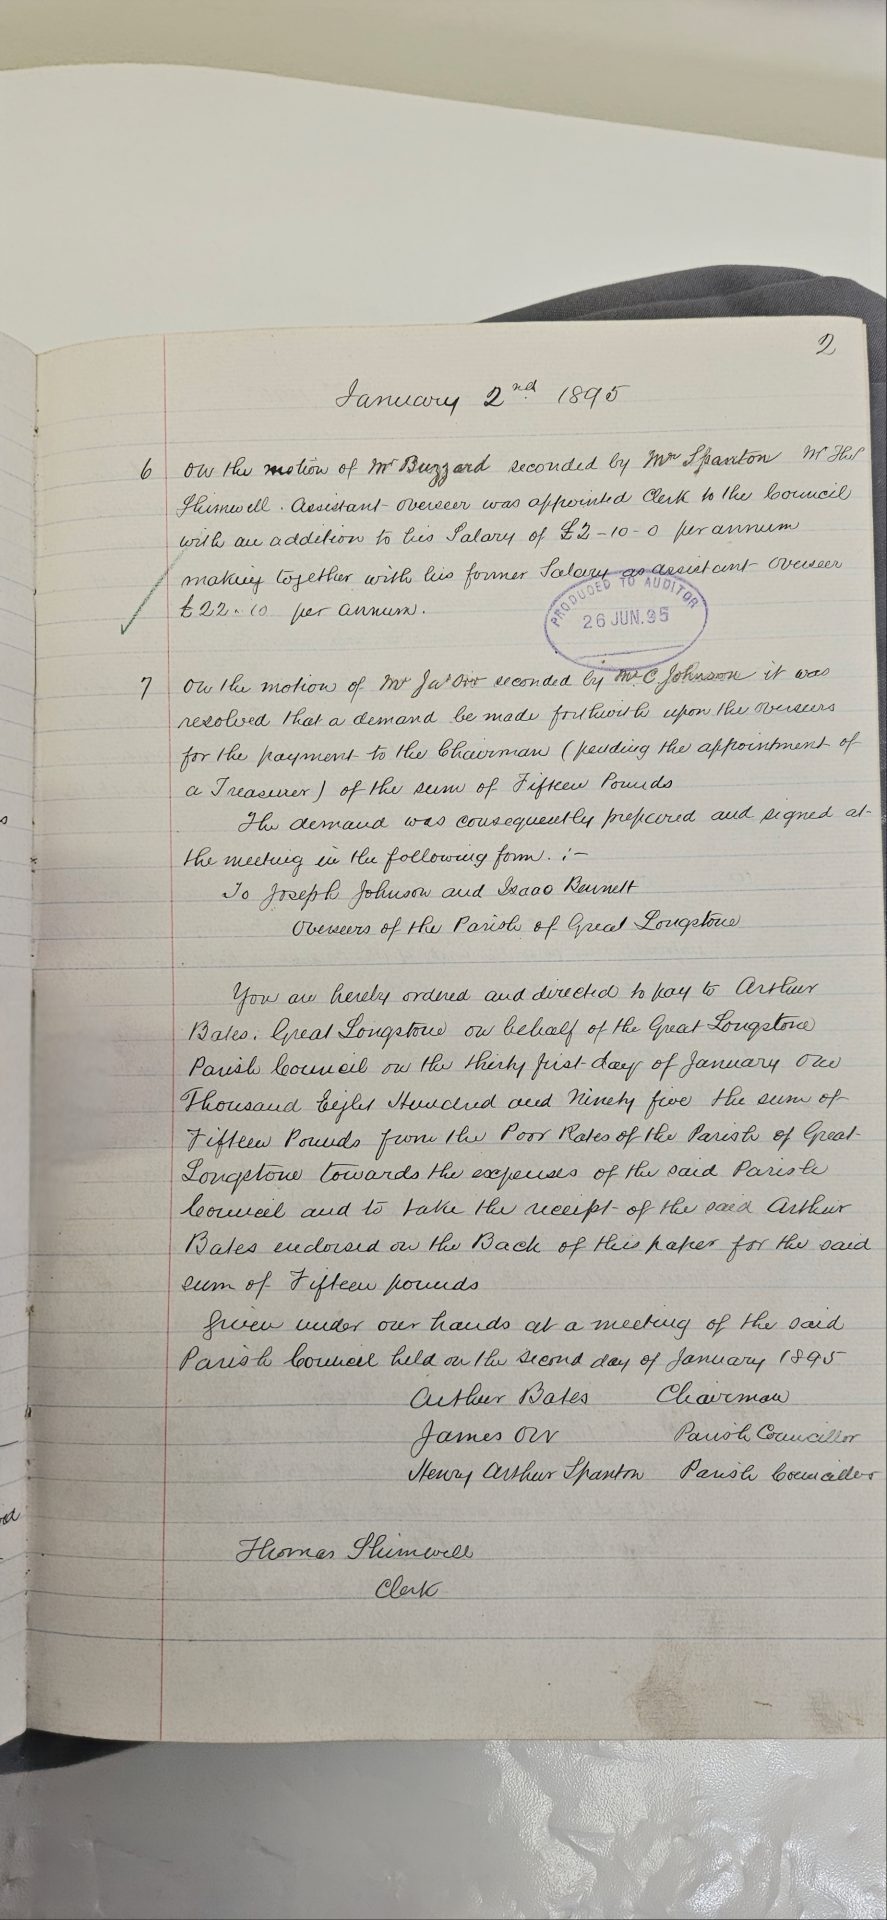 2
January 2nd 1895
6 On the motion of Mr Buzzard seconded by Mr Spanton Mr Thos
Shimwell. Assistant overseer was appointed Clerk to the Council
with an addition to his Salary of £2-10-0 per annum
making together with his former Salary as assistant overseer
£22..10 per annum.
PRODUCED TO AUDITOR
26 JUN. 95
7 On the motion of Mr Jas Orr seconded by Mr C Johnson it was
resolved that a demand be made forthwith upon the overseers
for the payment to the Chairman (pending the appointment of
a Treasurer) of the sum of Fifteen Pounds
The demand was consequently prepared and signed at
the meeting in the following form. :-
To Joseph Johnson and Isaac Bennett
Overseers of the Parish of Great Longstone
You are hereby ordered and directed to pay to Arthur
Bates. Great Longstone on behalf of the Great Longstone
Parish Council on the thirty first day of January One
Thousand Eight Hundred and Ninety five the sum of
Fifteen Pounds from the Poor Rates of the Parish of Great
Longstone towards the expenses of the said Parish
Council and to take the receipt of the said Arthur
Bates endorsed on the Back of this paper for the said
sum of Fifteen pounds
Given under our hands at a meeting of the said
Parish Council held on the second day of January 1895
Arthur Bates Chairman
James Orr Parish Councillor
Henry Arthur Spanton Parish Councillor
Thomas Shimwell
Clerk